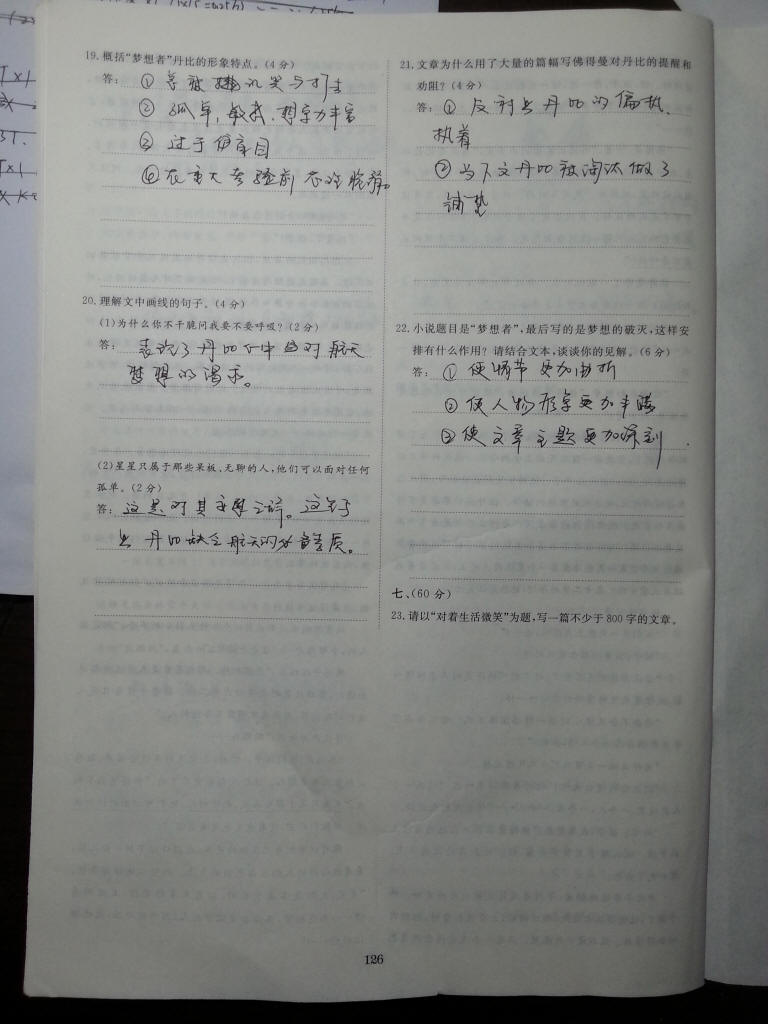 19.概括“梦想者”丹比的形象特点。(4分)
答:① 嘲讥笑与打击
② 孤单,敏感,想象力丰富
③ 过于盲目
④在重大考验前不冷静。
20.理解文中画线的句子。(4分)
(1)为什么你不干脆问我要不要呼吸?(2分)
答:表现了丹比心中对航天
梦想的渴求。
(2)星星只属于那些呆板、无聊的人,他们可以面对任何
孤单。(2分)
答:这是对其
丹比缺乏航天的素质。
21.文章为什么用了大量的篇幅写佛得曼对丹比的提醒和
劝阻?(4分)
答:① 反衬出丹比的偏执、
执着
②为下文丹比被淘汰做了
铺垫
22.小说题目是“梦想者”,最后写的是梦想的破灭,这样安
排有什么作用?请结合文本,谈谈你的见解。(6分)
答:① 使情节更加曲折
② 使人物形象更加丰满
③使文章主题更加深刻.
七、(60分)
23.请以“对着生活微笑”为题,写一篇不少于800字的文章。
126